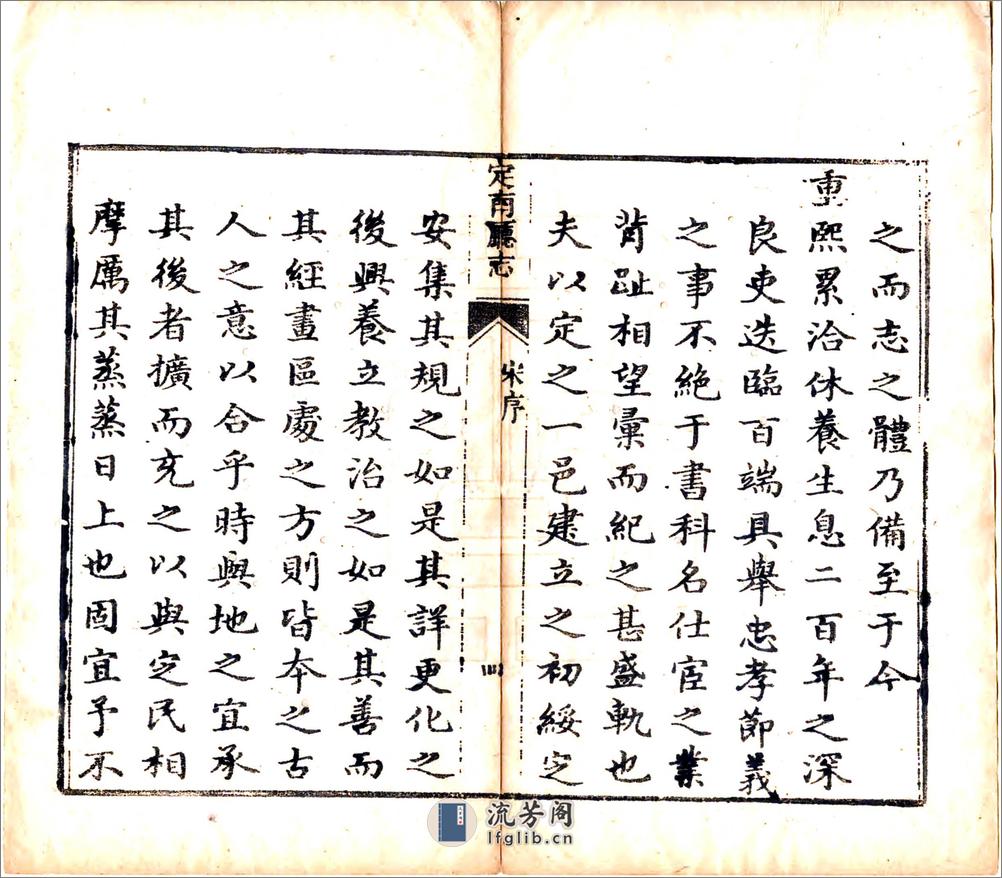 之而志之體乃備至于今
重熙累洽休養生息二百年之深
良吏迭臨百端具舉忠孝節義
之事不絶于書科名仕宦之業
背趾相望彙而紀之甚盛軌也
夫以定之一邑建立之初綏定
定南廳志
宋序
四
安集其規之如是其詳更化之
後興養立教治之如是其善而
其經畫區處之方則皆本之古
人之意以合乎時與地之宜承
其後者擴而充之以與定民相
摩厲其蒸蒸日上也固宜予不
流芳阁
lfglib.cn